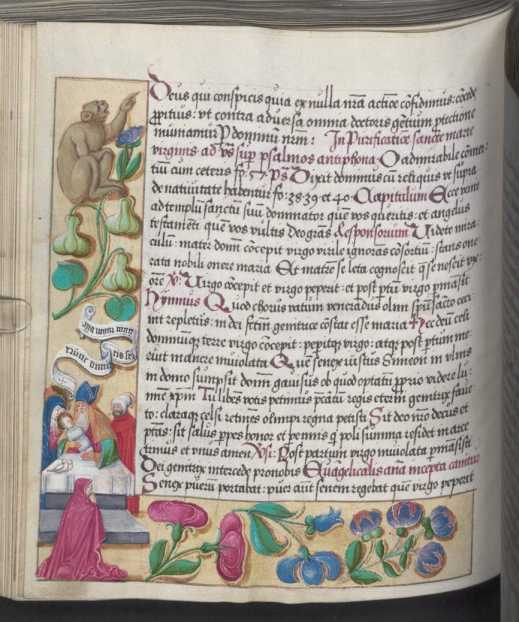 Deus qui conspicis quia ex nulla nr̄a actiōe cōfidimus: cōcede
p̄pitius: vt contra aduersa omnia doctoris gētium ꝓtectione
muniamur P domnū nrm̄: In Purificatiōe sancte marie
virginis ad vs̄ sup̄ psalmos antiphona O admirabile cōmer:
tiū cum ceteris fo: 57 ps̄ Dixit dominus cū reliquis vt supra
de natiuitate habentur fo: 38·39 et 40 Capitulum Ecce venit
ad templū sanctū suū dominator quē vos queritis: et angelus
testamēti quē vos vultis deo gr̄as Responsorium Videte mira:
culū: mater domī cōcepit virgo virile ignorans cōsortiū: stans one
rata nobili onere maria Et matrē se letā cognoscit q̄ se nescit vx
orē V̄: Virgo cōcepit et virgo peperit: et post ptū virgo pmāsit
hymnus Quod chorus vatum venerādus olim spū sacto ceci
nit repletus: in dei factū genitrice cōstat esse maria Hec deū celi
dominūq̄ terre virgo cōcepit: peperitq̄ virgo: atq̄ post partum me
ruit manere inuiolata Quē senex iustus Simeon in vlnis
in domo sumpsit domī gauisus ob quod optatū ꝓprio videre lu:
mīe xp̄m Tu libēs votis petimus p̄catū regis eterni genitrix faue
to: claraq̄ celsi retines olimpi regna petisti Sit deo nr̄o decus et
ptās: sit salus ppes honor et pennis q̄ poli summa residet in arce
trinus et vnus amen Vs̄: Post partum virgo inuiolata permāsisti
Dei genitrix intercede pro nobis Euāgelicalis ana incepta cantatur
Senex puerū portabat: puer aūt senem regebat quē virgo peperit
Nunc dimi